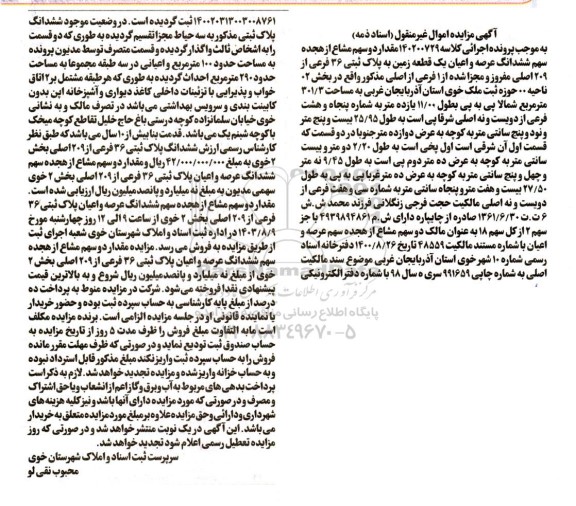 آگهی مزایده اموال غیرمنقول (اسناد ذمه)
به موجب پرونده اجرائی کلاسه ۱۴۰۲۰۰۷۲۹ مقدار دو سهم مشاع از هجده
سهم ششدانگ عرصه و اعیان یک قطعه زمین به پلاک ثبتی ۳۶ فرعی از
۲۰۹ اصلی مفروز و مجزا شده از ۱ فرعی از اصلی مذکور واقع در بخش ۰۲
ناحیه ۰۰ حوزه ثبت ملک خوی استان آذربایجان غربی به مساحت ۳۰۱/۳
مترمربع شمالا پی به پی بطول ۱۱/۰۰ یازده متر به شماره پنجاه و هشت
فرعی از دویست و نه اصلی شرقا پی است به طول ۲۵/۹۵ بیست و پنج متر
و نود و پنج سانتی متر به کوچه به عرض دوازده متر جنوبا در دو قسمت که
قسمت اول آن شرقی است اول پخی است به طول ۲/۲۰ دو متر و بیست
سانتی متر به کوچه به عرض ده متر دوم پی است به طول ۹/۴۵ نه متر
و چهل و پنج سانتی متر به کوچه به عرض ده متر غربا پی به پی به طول
۲۷/۵۰ بیست و هفت متر و پنجاه سانتی متر به شماره سی و هفت فرعی از
دویست و نه اصلی مالکیت حجت فرجی زنگلانی فرزند محمد ش.ش
۶ ت.ت ۱۳۶۱/۶/۳۰ صادره از چایپاره دارای ش.م ۴۹۳۹۸۹۴۸۶۱ با جز
سهم ۲ از کل سهم ۱۸ به عنوان مالک دو سهم مشاع از هجده سهم عرصه و
اعیان با شماره مستند مالکیت ۴۸۵۵۹ تاریخ ۱۴۰۰/۸/۲۶ دفترخانه اسناد
رسمی شماره ۱۰ شهر خوی استان آذربایجان غربی موضوع سند مالکیت
اصلی به شماره چاپی ۹۹۱۶۵۹ سری ه سال ۹۸ با شماره دفتر الکترونیکی
۱۴۰۰۲۰۳۱۳۰۰۳۰۰۸۷۶۱ ثبت گردیده است. در وضعیت موجود ششدانگ
پلاک ثبتی مذکور به سه حیاط مجزا تقسیم گردیده به طوری که دو قسمت
را به اشخاص ثالث واگذار گردیده و قسمت متصرف توسط مدیون پرونده
به مساحت حدود ۱۰۰ مترمربع و اعیانی در سه طبقه مجموعا به مساحت
حدود ۲۹۰ مترمربع احداث گردیده به طوری که هر طبقه مشتمل بر ۲ اتاق
خواب و پذیرایی با تزئینات داخلی کاغذ دیواری و آشپزخانه اپن بدون
کابینت بندی و سرویس بهداشتی می باشد در تصرف مالک و به نشانی
خوی خیابان سلمانزاده کوچه درستی باغ حاج خلیل تقاطع کوچه میخک
با کوچه شبنم یک می باشد. قدمت بنا بیش از ۱۰ سال می باشد که طبق نظر
کارشناس رسمی ارزش ششدانگ پلاک ثبتی ۳۶ فرعی از ۲۰۹ اصلی بخش
۲ خوی به مبلغ ۴۲/۰۰۰/۰۰۰/۰۰۰ ریال و مقدار دو سهم مشاع از هجده سهم
ششدانگ عرصه و اعیان پلاک ثبتی ۳۶ فرعی از ۲۰۹ اصلی بخش ۲ خوی
سهمی مدیون به مبلغ نه میلیارد و پانصد میلیون ریال ارزیابی شده است.
مقدار دو سهم مشاع از هجده سهم ششدانگ عرصه و اعیان پلاک ثبتی ۳۶
فرعی از ۲۰۹ اصلی بخش ۲ خوی از ساعت ۹ الی ۱۲ روز چهارشنبه مورخ
۱۴۰۳/۸/۹ در اداره ثبت اسناد و املاک شهرستان خوی شعبه اجرای ثبت
از طریق مزایده به فروش می رسد. مزایده مقدار دو سهم مشاع از هجده
سهم ششدانگ عرصه و اعیان پلاک ثبتی ۳۶ فرعی از ۲۰۹ اصلی بخش ۲
خوی از مبلغ نه میلیارد و پانصد میلیون ریال شروع و به بالاترین قیمت
پیشنهادی نقدا فروخته می شود. شرکت در مزایده منوط به پرداخت ده
درصد از مبلغ پایه کارشناسی به حساب سپرده ثبت بوده و حضور خریدار
یا نماینده قانونی او در جلسه مزایده الزامی است. برنده مزایده مکلف
است مابه التفاوت مبلغ فروش را ظرف مدت ۵ روز از تاریخ مزایده به
حساب صندوق ثبت تودیع نماید و در صورتی که ظرف مهلت مقرر مانده
فروش را به حساب سپرده ثبت واریز نکند مبلغ مذکور قابل استرداد نبوده
و به حساب خزانه واریز شده و مزایده تجدید خواهد شد. لازم به ذکر است
پرداخت بدهی های مربوط به آب و برق و گاز اعم از انشعاب و یا حق اشتراک
و مصرف و در صورتی که مورد مزایده دارای آنها باشد و نیز کلیه هزینه های
شهرداری و دارائی و حق مزایده علاوه بر مبلغ مورد مزایده متعلق به خریدار
می باشد. این آگهی در یک نوبت منتشر خواهد شد و در صورتی که روز
مزایده تعطیل رسمی اعلام شود تجدید خواهد شد.
سرپرست ثبت اسناد و املاک شهرستان خوی
محبوب نقی لو